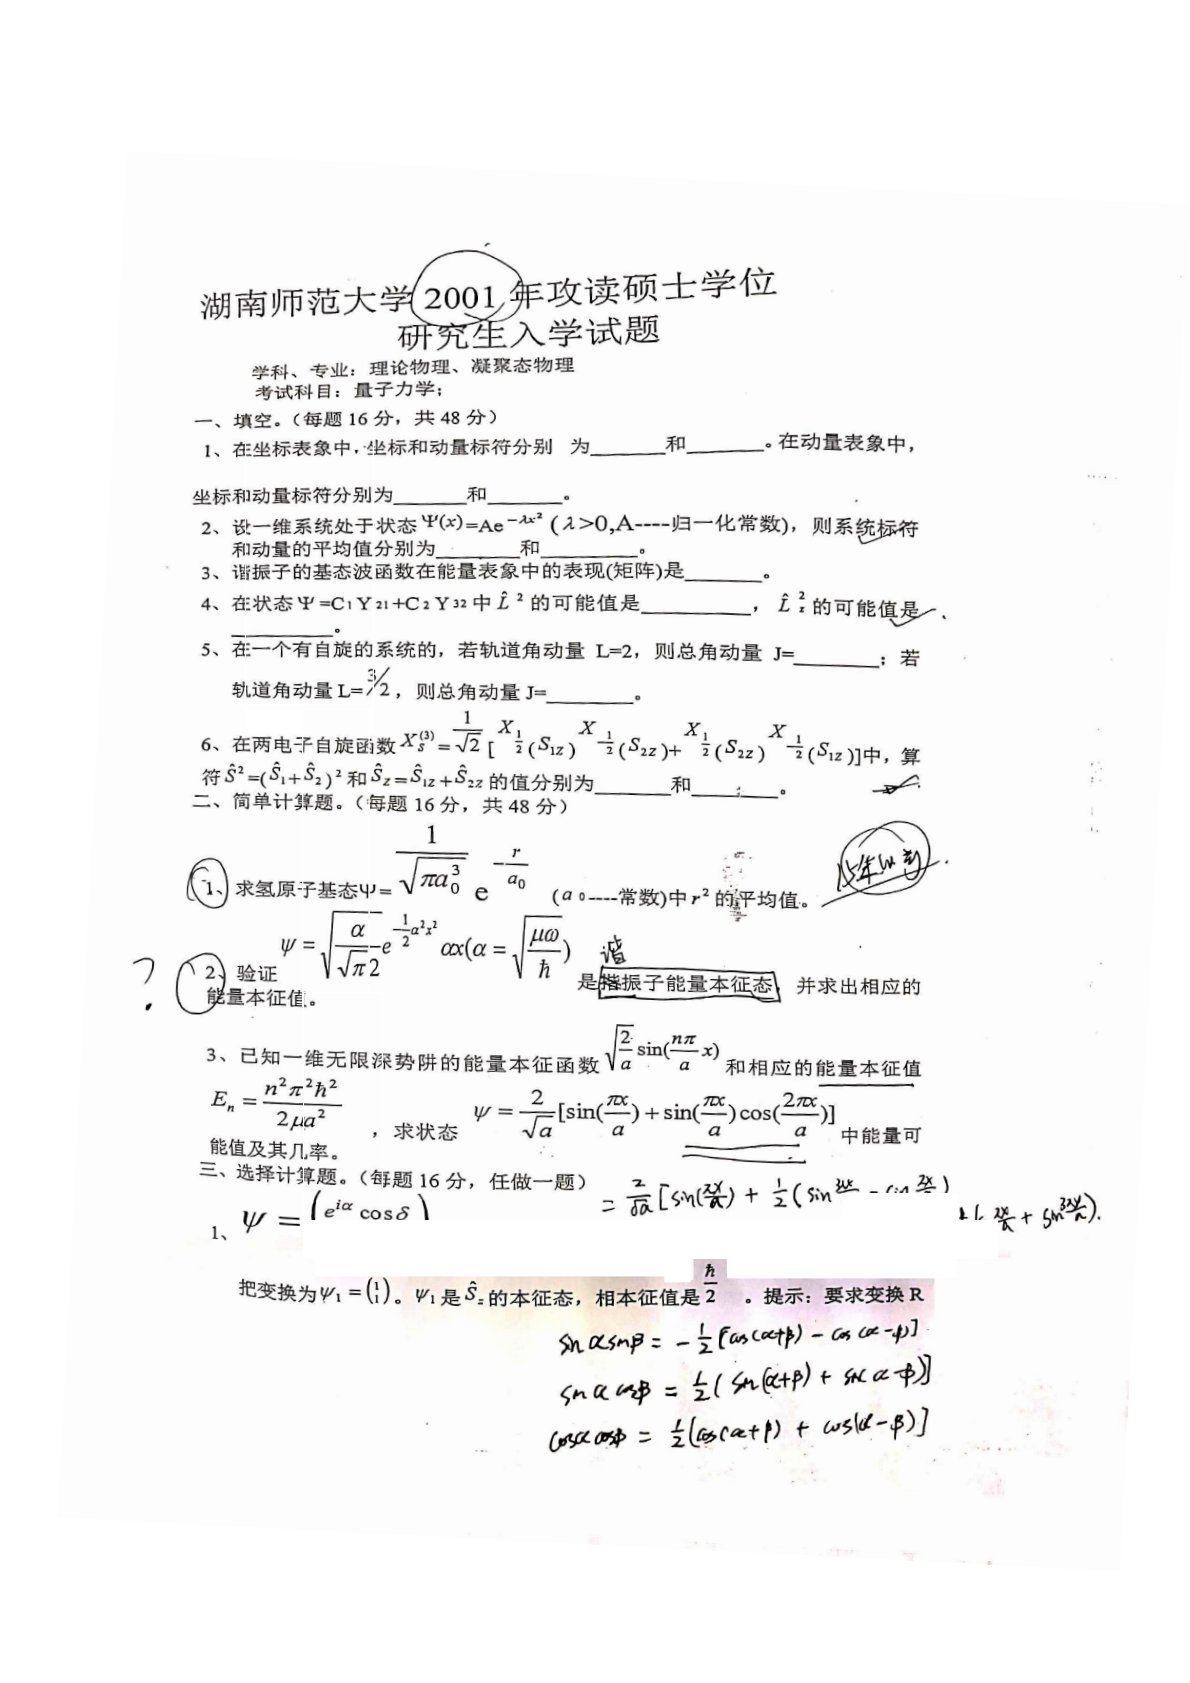 湖南师范大学 2001 年攻读硕士学位
研究生入学试题
学科、专业：理论物理、凝聚态物理
考试科目：量子力学；
一、填空。（每题 16 分，共 48 分）
1、在坐标表象中，坐标和动量标符分别 为______和______。在动量表象中，
坐标和动量标符分别为______和______。
2、设一维系统处于状态 Ψ(x)=Ae^{-λx²} (λ>0,A----归一化常数)，则系统标符
和动量的平均值分别为______和________。
3、谐振子的基态波函数在能量表象中的表现(矩阵)是______。
4、在状态 Ψ=C₁Y₂₁+C₂Y₃₂ 中 L̂² 的可能值是_________，L̂_z² 的可能值是
________。
5、在一个有自旋的系统的，若轨道角动量 L=2，则总角动量 J=_______；若
轨道角动量 L=3/2，则总角动量 J=_______。
6、在两电子自旋函数 X_S^{(3)}=1/√2[X_{1/2}(S_{1Z})X_{-1/2}(S_{2Z})+X_{1/2}(S_{2Z})X_{-1/2}(S_{1Z})]中，算
符 Ŝ²=(Ŝ₁+Ŝ₂)² 和 Ŝ_Z=Ŝ_{1Z}+Ŝ_{2Z} 的值分别为______和_______。
二、简单计算题。（每题 16 分，共 48 分）
1、求氢原子基态Ψ= 1/√(πa₀³) e^{-r/a₀} (a₀----常数)中 r² 的平均值。
ψ=√(α/(√π2)) e^{-½α²x²} αx(α=√(μω/ħ)) 谐
? 2、验证 是指振子能量本征态， 并求出相应的
能量本征值。
3、已知一维无限深势阱的能量本征函数 √(2/a) sin(nπ/a x) 和相应的能量本征值
E_n = n²π²ħ²/2μa² ，求状态 ψ = 2/√a [sin(πx/a) + sin(πx/a)cos(2πx/a)] 中能量可
能值及其几率。
三、选择计算题。（每题 16 分，任做一题）
1、 ψ = (e^{iα} cosδ)
把变换为 ψ₁ = (1 1)。ψ₁ 是 Ŝ_z 的本征态，相本征值是 ħ/2 。提示：要求变换 R
sinαsinβ = -½[cos(α+β) - cos(α-β)]
sinαcosβ = ½(sin(α+β) + sin(α-β)]
cosαcosβ = ½[cos(α+β) + cos(α-β)]